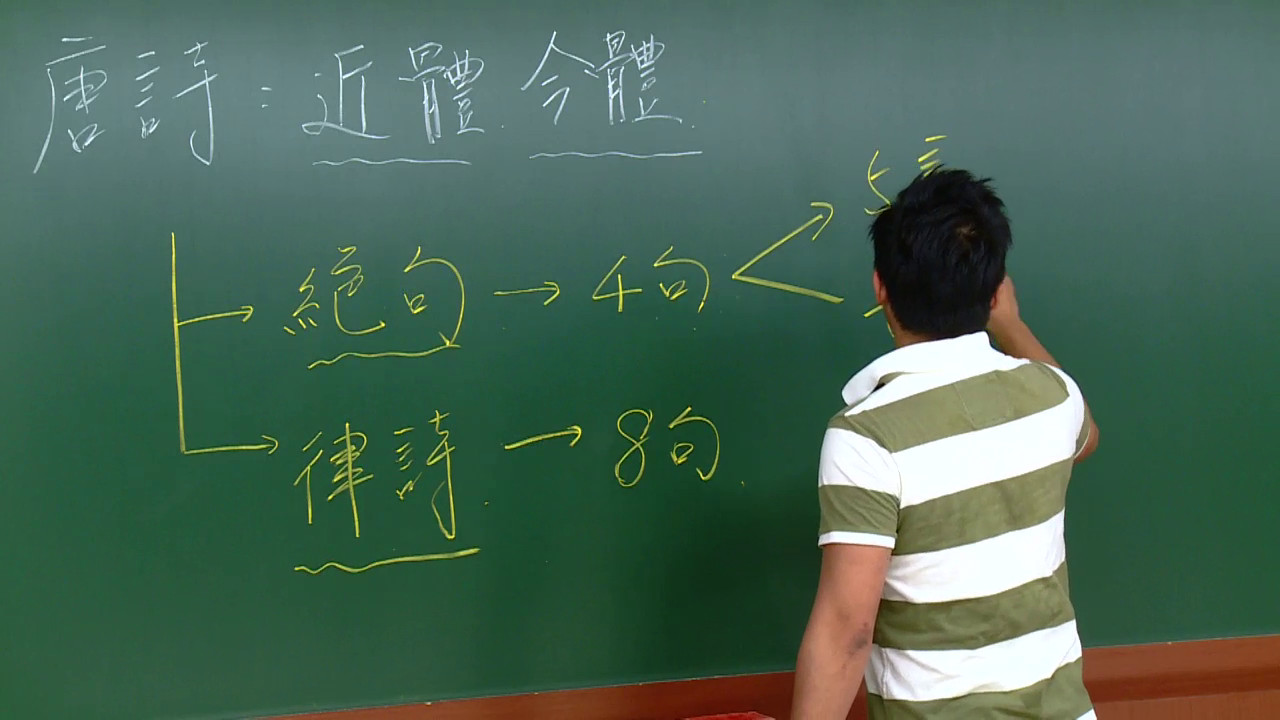 唐詩：近體 今體
5
絕句→4句
律詩→8句